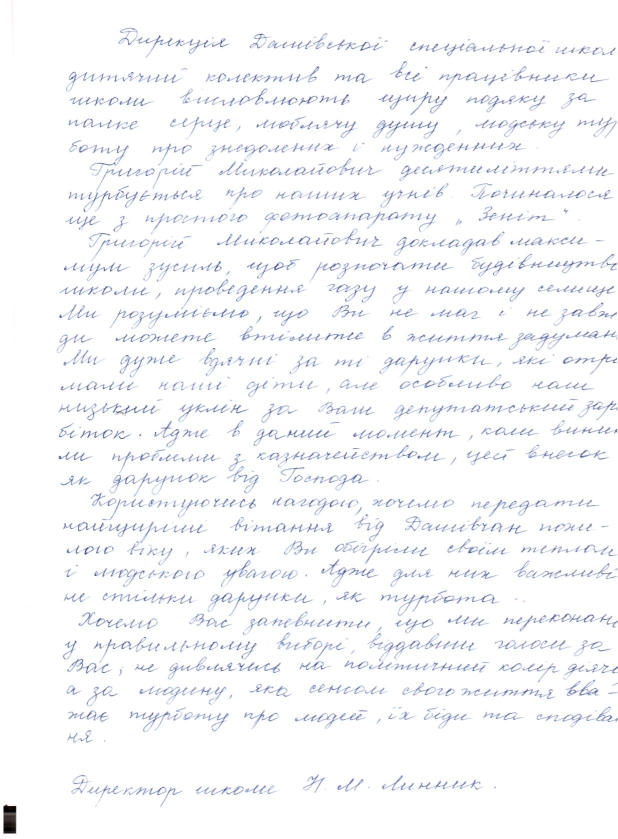 Дирекція Дашівської спеціальної школ
дитячий колектив та всі працівники
школи висловлюють щиру подяку за
палке серце, люблячу душу, людську тур
боту про знедолених і нужденних.
Григорій Миколайович десятиліттями
турбується про наших учнів. Починалося
ще з простого фотоапарату „Зеніт".
Григорій Миколайович докладав макси-
мум зусиль, щоб розпочати будівництво
школи, проведення газу у нашому селище
Ми розуміємо, що Ви не маг і не завж
ди можете втілити в життя задуман
Ми дуже вдячні за ті дарунки, які отри
мали наші діти, але особливо наш
низький уклін за Ваш депутатський зар
біток. Адже в даний момент, коли виник
ли проблеми з казначейством, цей внесок
як дарунок від Господа.
Користуючись нагодою, хочемо передати
найщиріші вітання від Дашівчан похи-
лого віку, яких Ви обігріли своїм теплом
і людською увагою. Адже для них важливі
не стільки дарунки, як турбота..
Хочемо Вас запевнити, що ми переконані
у правильному виборі, віддавши голоси за
Вас, не дивлячись на політичний колір діяче
а за людину, яка сенсом свого життя вва-
жає турботу про людей, їх біди та сподіван
ня.
Директор школи Н. М. Линник.